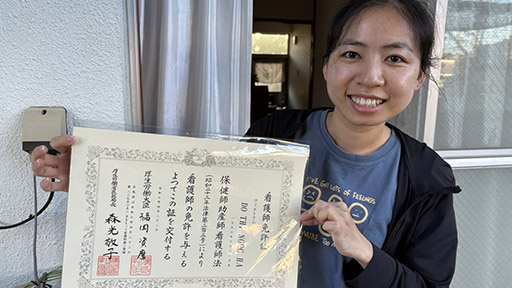 看護師免許
DO THI NGOC HA
保健師助産師看護師法
(昭和二十三年法律第二百三号)により
看護師の免許を与える
よってこの証を交付する
厚生労働大臣 福岡資麿
厚生労働省医政局長 森光敬子
'VE GOT LOTS OF FEELINGS
TOO